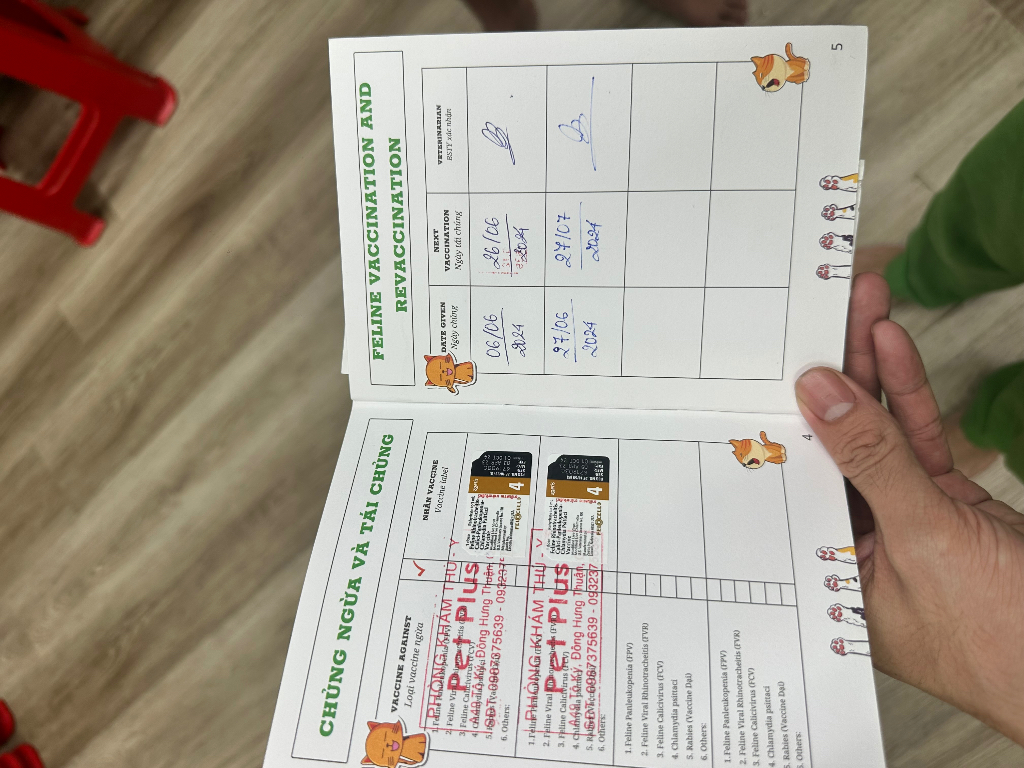 CHỦNG NGỪA VÀ TÁI CHỦNG
VACCINE AGAINST
Loại vaccine ngừa
NHÃN VACCINE
Vaccine label
1. Feline Panleukopenia (FPV)
2. Feline Viral Rhinotracheitis (FVR)
3. Feline Calicivirus (FCV)
4. Chlamydia psittaci
5. Rabies (Vaccine Dại)
6. Others:
PHÒNG KHÁM THÚ Y
Pet Plus
A49 TÔ KÝ, Đông Hưng Thuận,
SĐT: 0987375639 - 093237
FELOCELL
4
1. Feline Panleukopenia (FPV)
2. Feline Viral Rhinotracheitis (FVR)
3. Feline Calicivirus (FCV)
4. Chlamydia psittaci
5. Rabies (Vaccine Dại)
6. Others:
PHÒNG KHÁM THÚ Y
Pet Plus
A49 TÔ KÝ, Đông Hưng Thuận,
SĐT: 0987375639 - 093237
FELOCELL
4
1. Feline Panleukopenia (FPV)
2. Feline Viral Rhinotracheitis (FVR)
3. Feline Calicivirus (FCV)
4. Chlamydia psittaci
5. Rabies (Vaccine Dại)
6. Others:
1. Feline Panleukopenia (FPV)
2. Feline Viral Rhinotracheitis (FVR)
3. Feline Calicivirus (FCV)
4. Chlamydia psittaci
5. Rabies (Vaccine Dại)
6. Others:
4
FELINE VACCINATION AND
REVACCINATION
DATE GIVEN
Ngày chủng
NEXT
VACCINATION
Ngày tái chủng
VETERINARIAN
BSTY xác nhận
06/06
2024
26/06
2024
27/06
2024
27/07
2024
5